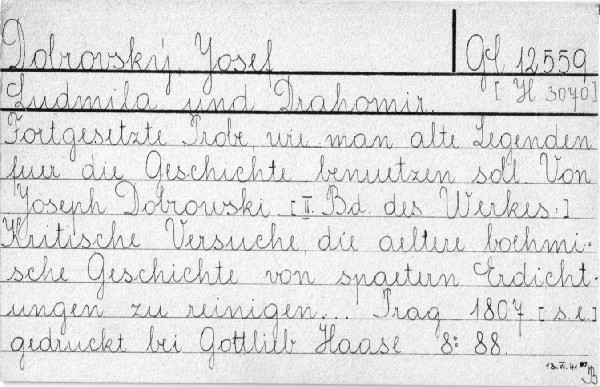 Dobrovský, Josef Gf 12559
Ludmila und Drahomir. [H 3070]
Fortgesetzte Probe, wie man alte Legenden
fuer die Geschichte benuetzen soll. Von
Joseph Dobrowski. [II. Bd. des Werkes:]
Kritische Versuche, die aeltere boehmi-
sche Geschichte von spaetern Erdicht-
ungen zu reinigen... Prag 1807 [s.e.]
gedruckt bei Gottlieb Haase 8: 88.
13.VI.41